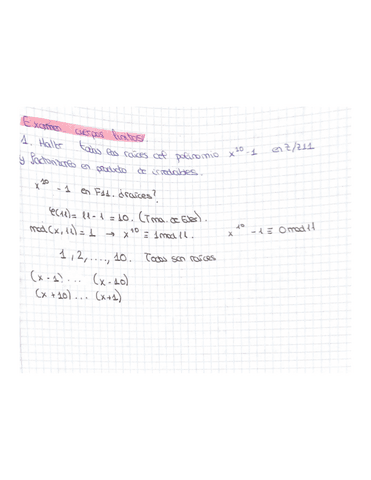 Examen cuerpos finitos.
1. Hallar todas las raíces del polinomio x^10 - 1 en Z/Z11
y factorizarlo en producto de irreducibles.
x^10 - 1 en F11. ¿raíces?
φ(11) = 11 - 1 = 10. (Tma. de Euler).
mcd(x, 11) = 1 → x^10 ≡ 1 mod 11. x^10 - 1 ≡ 0 mod 11
1, 2, ..., 10. Todas son raíces
(x - 1) ... (x - 10)
(x + 10) ... (x + 1)